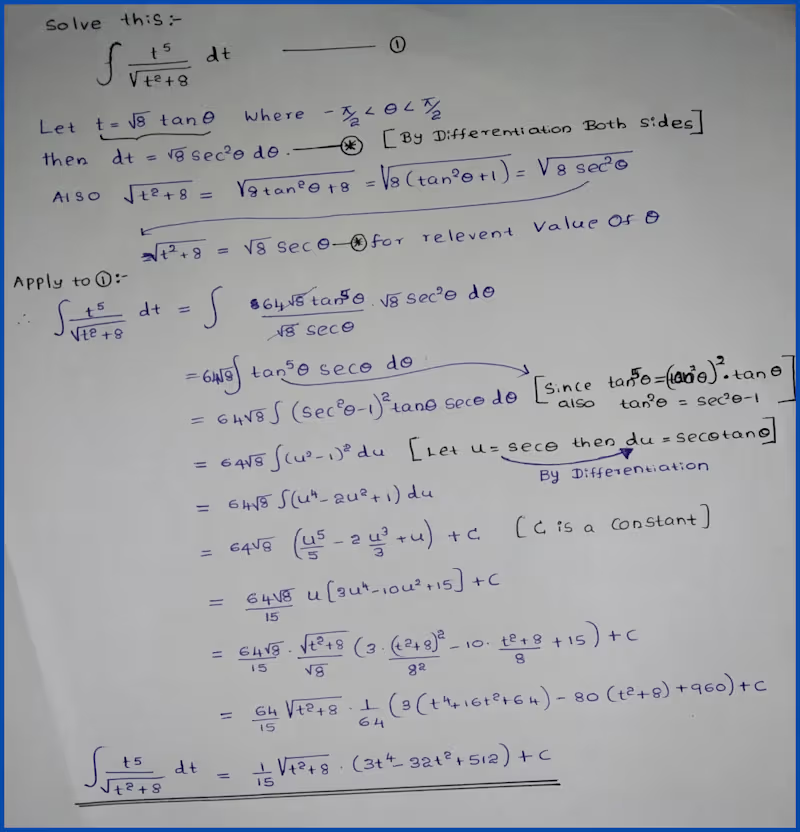 Solve this:-
∫ t⁵/√(t²+8) dt ——— ①
Let t = √8 tanθ where -π/2 < θ < π/2
then dt = √8 sec²θ dθ. ——— ⊛ [By Differentiation Both sides]
Also √(t²+8) = √(8tan²θ+8) = √(8(tan²θ+1)) = √(8 sec²θ)
√(t²+8) = √8 secθ —⊛ for relevent value of θ
Apply to ①:-
∴ ∫ t⁵/√(t²+8) dt = ∫ (64√8 tan⁵θ · √8 sec²θ dθ)/(√8 secθ)
= 64√8 ∫ tan⁵θ secθ dθ
= 64√8 ∫ (sec²θ-1)² tanθ secθ dθ [since tan⁵θ = (tan²θ)² · tanθ also tan²θ = sec²θ-1]
= 64√8 ∫ (u²-1)² du [Let u = secθ then du = secθtanθ]
By Differentiation
= 64√8 ∫ (u⁴ - 2u² + 1) du
= 64√8 (u⁵/5 - 2 u³/3 + u) + c [C is a constant]
= 64√8/15 u [3u⁴ - 10u² + 15] + c
= 64√8/15 · √(t²+8)/√8 (3 · (t²+8)²/8² - 10 · (t²+8)/8 + 15) + c
= 64/15 √(t²+8) · 1/64 (3(t⁴+16t²+64) - 80(t²+8) + 960) + c
∫ t⁵/√(t²+8) dt = 1/15 √(t²+8) · (3t⁴ - 32t² + 512) + c